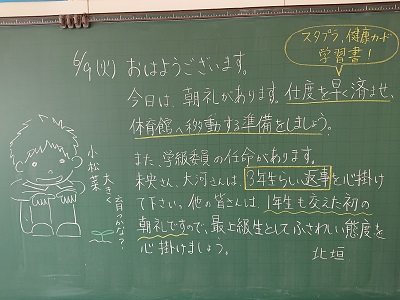 スタプラ、健康カード
学習書!
6/9(火) おはようございます。
今日は、朝礼があります。仕度を早く済ませ、
体育館へ移動する準備をしましょう。
また、学級委員の任命があります。
未央さん、大河さんは、3年生らしい返事を心掛け
て下さい。他の皆さんは、1年生も交えた初の
朝礼ですので、最上級生としてふさわしい態度を
心掛けましょう。
北垣
小松菜
大きく
育つかな?